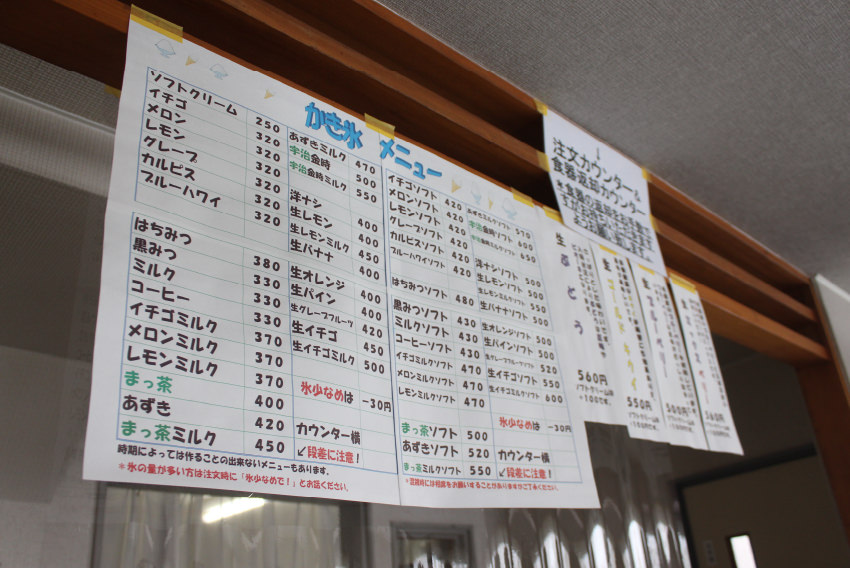 かき氷 メニュー
ソフトクリーム 250
イチゴ 320
メロン 320
レモン 320
グレープ 320
カルピス 320
ブルーハワイ 320
はちみつ 380
黒みつ 330
ミルク 330
コーヒー 330
イチゴミルク 370
メロンミルク 370
レモンミルク 370
まっ茶 400
あずき 420
まっ茶ミルク 450
時期によっては作ることの出来ないメニューもあります。
*氷の量が多い方は注文時に「氷少なめで!」とお話ください。
あずきミルク 470
宇治金時 500
宇治金時ミルク 550
洋ナシ 400
生レモン 400
生レモンミルク 450
生バナナ 400
生オレンジ 400
生パイン 400
生グレープフルーツ 420
生イチゴ 450
生イチゴミルク 500
氷少なめは -30円
カウンター横
↙段差に注意!
イチゴソフト 420
メロンソフト 420
レモンソフト 420
グレープソフト 420
カルピスソフト 420
ブルーハワイソフト 420
はちみつソフト 480
黒みつソフト 430
ミルクソフト 430
コーヒーソフト 430
イチゴミルクソフト 470
メロンミルクソフト 470
レモンミルクソフト 470
まっ茶ソフト 500
あずきソフト 520
まっ茶ミルクソフト 550
あずきミルクソフト 570
宇治金時ソフト 600
宇治金時ミルクソフト 650
洋ナシソフト 500
生レモンソフト 500
生レモンミルクソフト 550
生バナナソフト 500
生オレンジソフト 500
生パインソフト 500
生グレープフルーツソフト 520
生イチゴソフト 550
生イチゴミルクソフト 600
氷少なめは -30円
カウンター横
↙段差に注意!
↓
注文カウンター&
食器返却カウンター
生ぶどう
560円
生ゴールドキウイ
550円
生ブルーベリー
500円
560円